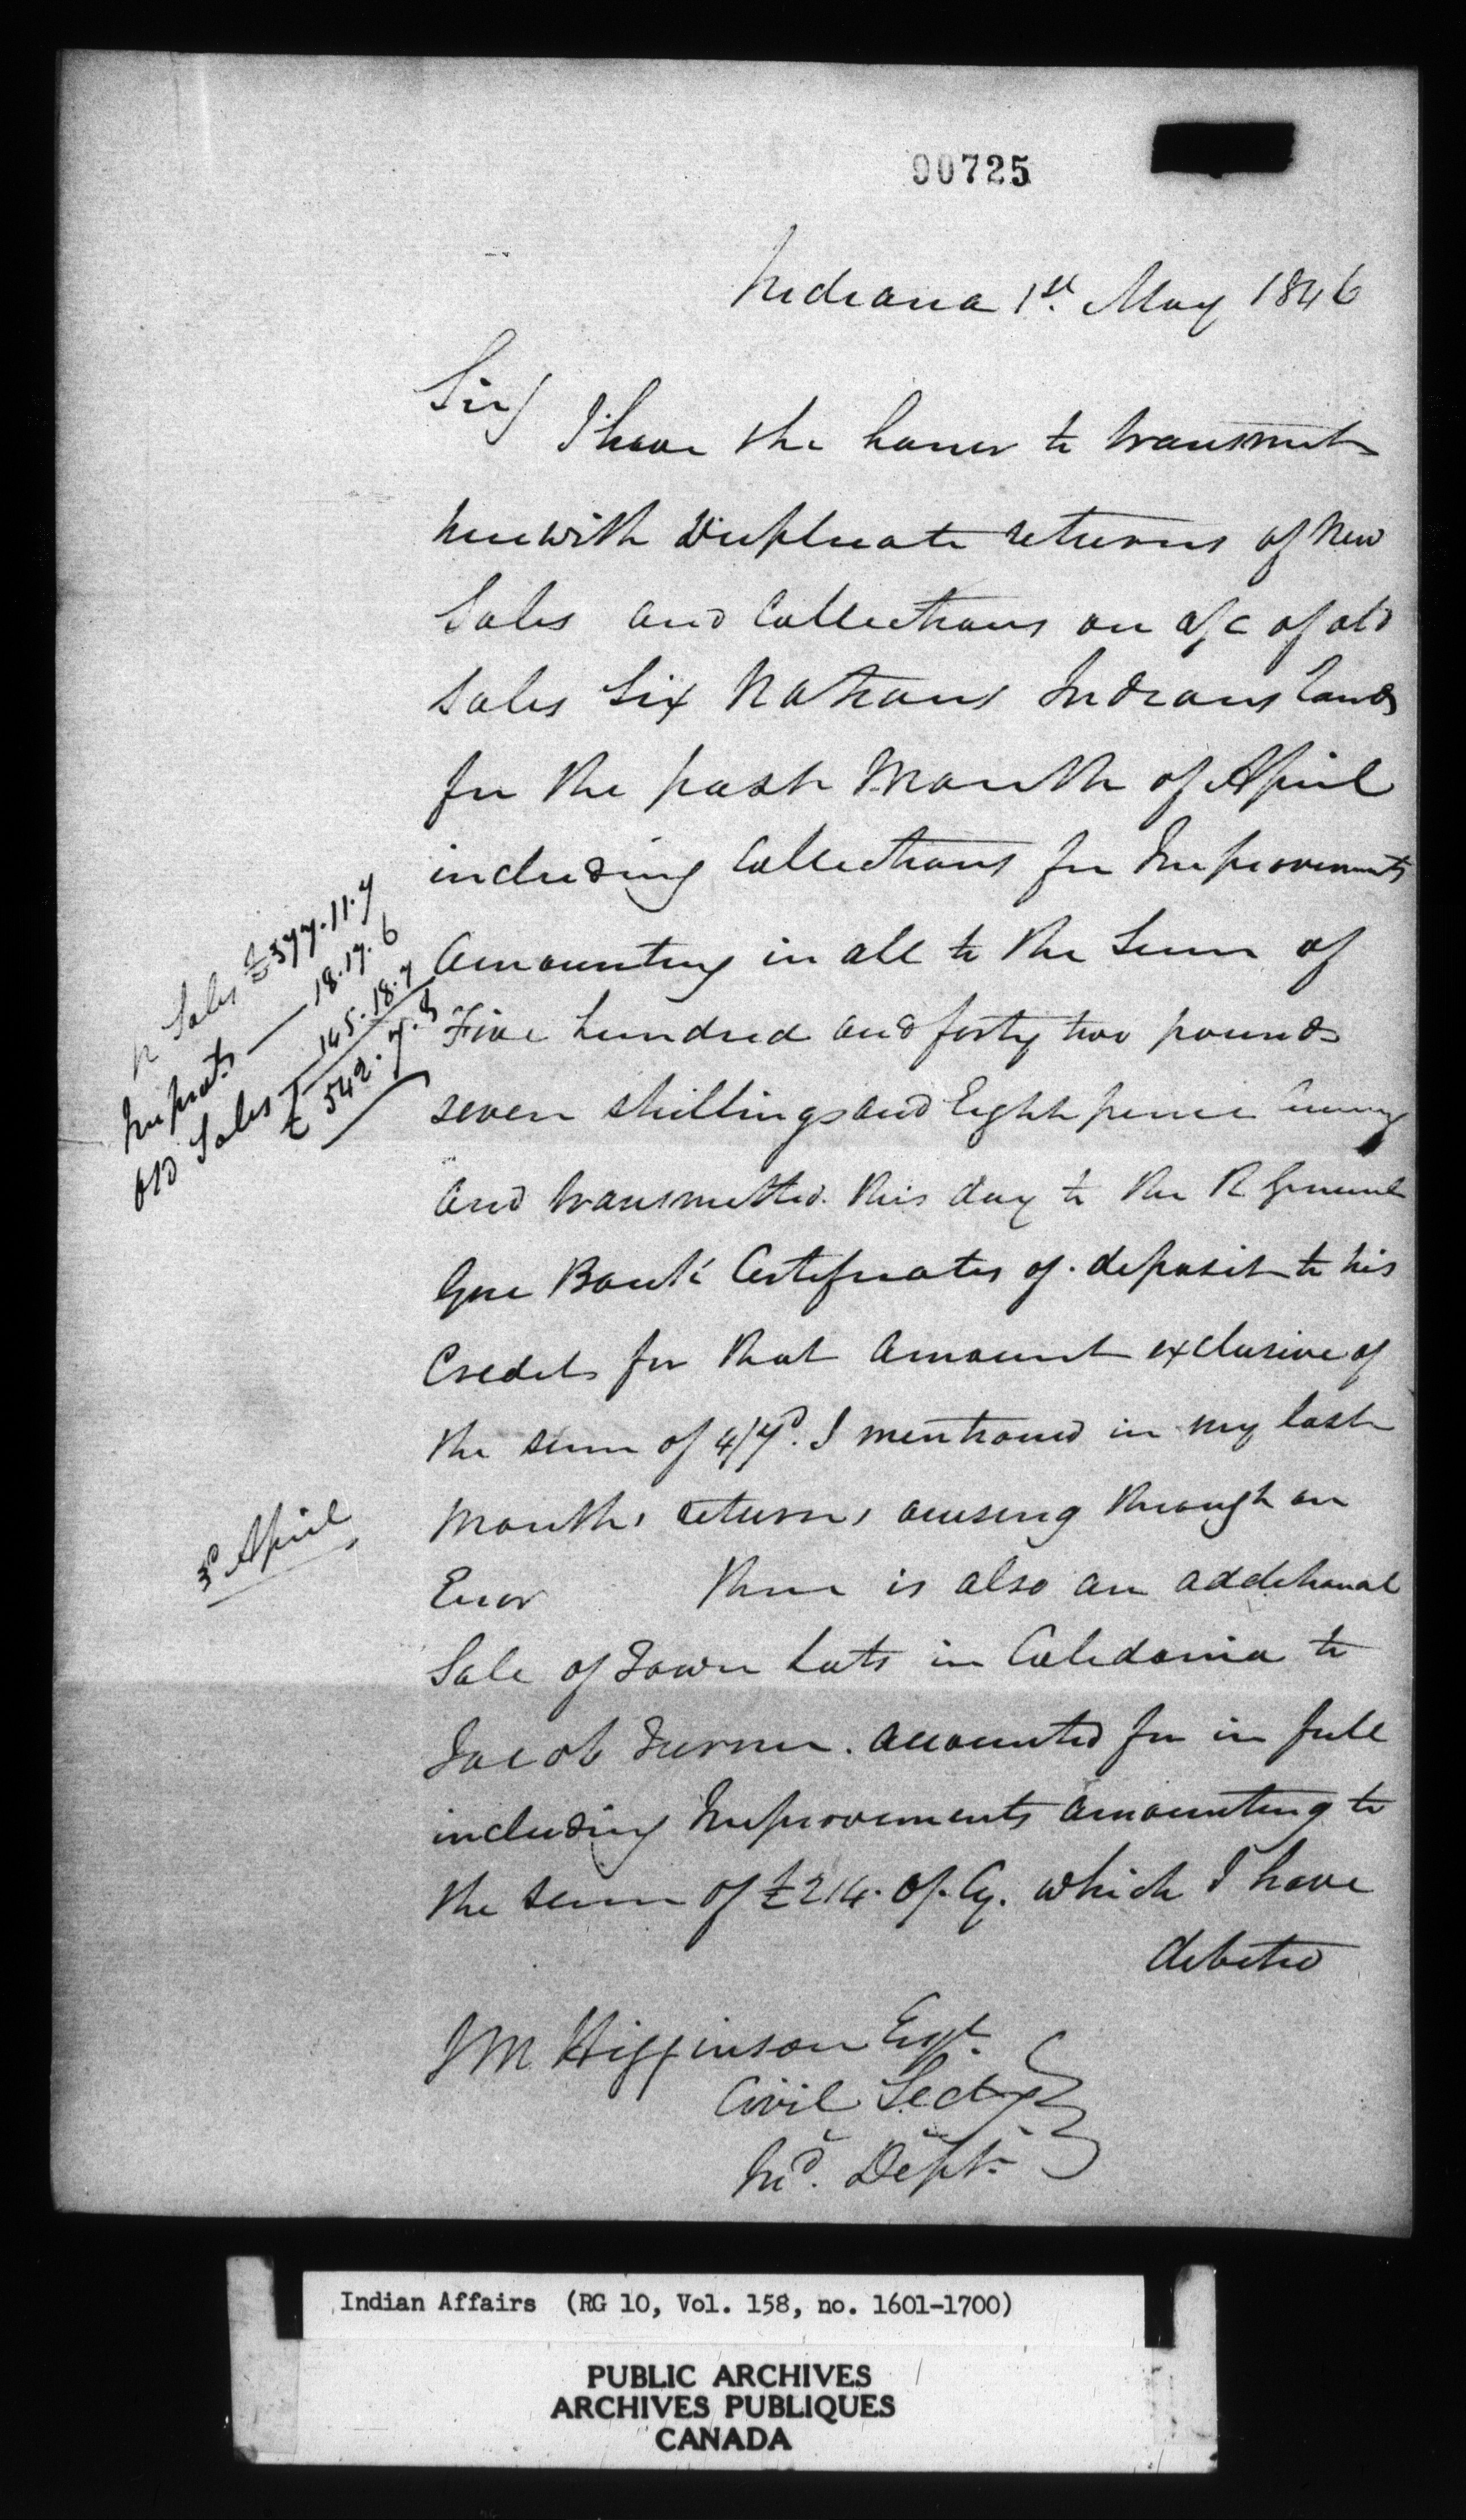 90725
Indiana 1st. May 1846
Sir/
I have the honor to transmit
herewith Duplicate returns of New
Sales and Collections on a/c of old
Sales Six Nations Indians lands
for the past Month of April
including Collections for Improvements
N Sales £377.11.7
Improts 18.17.6
Old Sales 145.18.7
£ 542.7.8
Amounting in all to the Sum of
Five hundred and forty two pounds
seven shillings and Eight pence Curncy
and transmitted this day to the R General
Gore Bank Certificates of deposit to his
Credit for that amount exclusive of
the sum of 4/7d. I mentioned in my last
3d April
Months returns arising through an
Error There is also an additional
Sale of Town Lots in Caledonia to
Jacob Turner. accounted for in full
including Improvements amounting to
the sum of £214. Cy. which I have
debited
JM Higginson Esqr.
Civil Secty
Ind. Dept.
Indian Affairs (RG 10, Vol. 158, no. 1601-1700)
PUBLIC ARCHIVES
ARCHIVES PUBLIQUES
CANADA